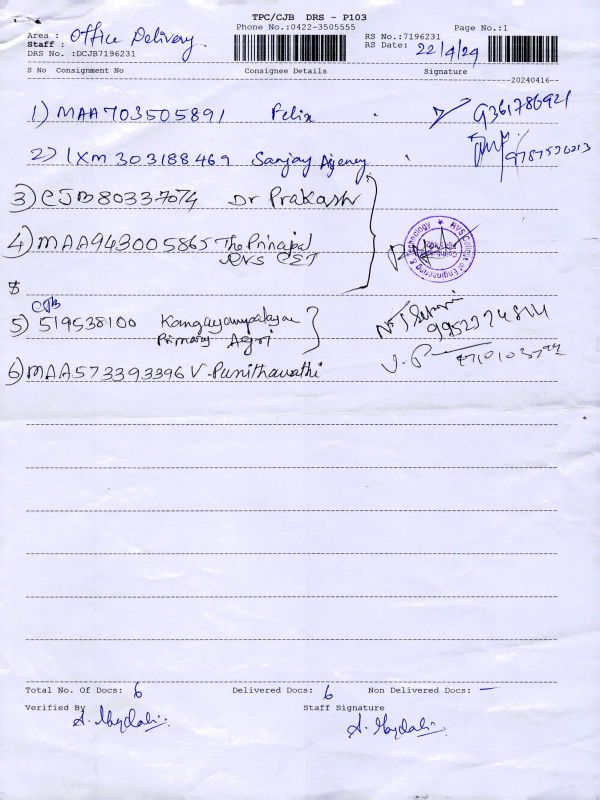 TPC/CJB DRS - P103
Phone No.:0422-3505555
Page No.:1
Area : Office Delivery
Staff :
DRS No. :DCJB7196231
RS No.:7196231
RS Date: 22/4/24
S No Consignment No Consignee Details Signature
20240416
1) MAA703505891 Felix 9361786921
2) IXM303188469 Sanjay Agency 9787520213
3) CJB80337074 Dr Prakash
4) MAA943005865 The Principal
RVS CET
RVS College of Engineering & Technology
CJB
5) 519538100 Kangayampalayam
Primary Agri
9952374814
6) MAA573393396 V. Punithavathi
V. P
Total No. Of Docs: 6 Delivered Docs: 6 Non Delivered Docs: —
Verified By Staff Signature